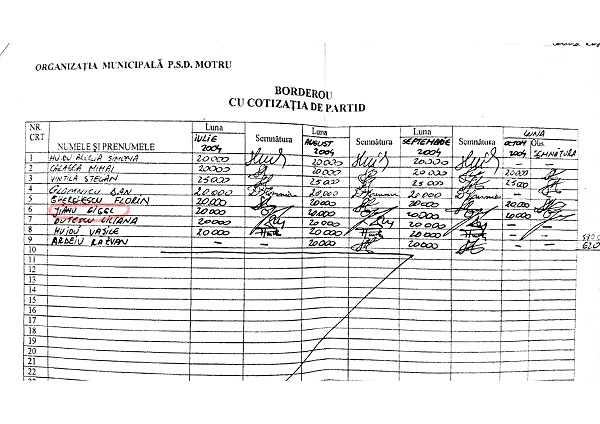 ORGANIZAȚIA MUNICIPALĂ P.S.D. MOTRU
BORDEROU
CU COTIZAȚIA DE PARTID
NR. CRT NUMELE ȘI PRENUMELE Luna IULIE 2004 Semnătura Luna AUGUST 2004 Semnătura Luna SEPTEMBRIE 2004 Semnătura LUNA OCTOM 2004 Obs. SEMNĂTURA
1 HUIDU ALICIA SIMONA 20000 20000 20000 —
2 CALAGEA MIHAI 20000 20 000 20 000 20000
3 VINTILA STELIAN 25000 25 000 25 000 25000
4 DAN 20000 20000 20000 —
5 GHERGHESCU FLORIN 20000 20000 20000 20000
6 GIGEL 20000 20000 20000 20000
7 DUTESCU LILIANA 20000 20 000 20 000 —
8 HUIDU VASILE 20 000 20 000 20000 —
9 ARDEIU RAZVAN — — 20000 20 000 —
10
11
12
13
14
15
16
17
18
19
20
21
22